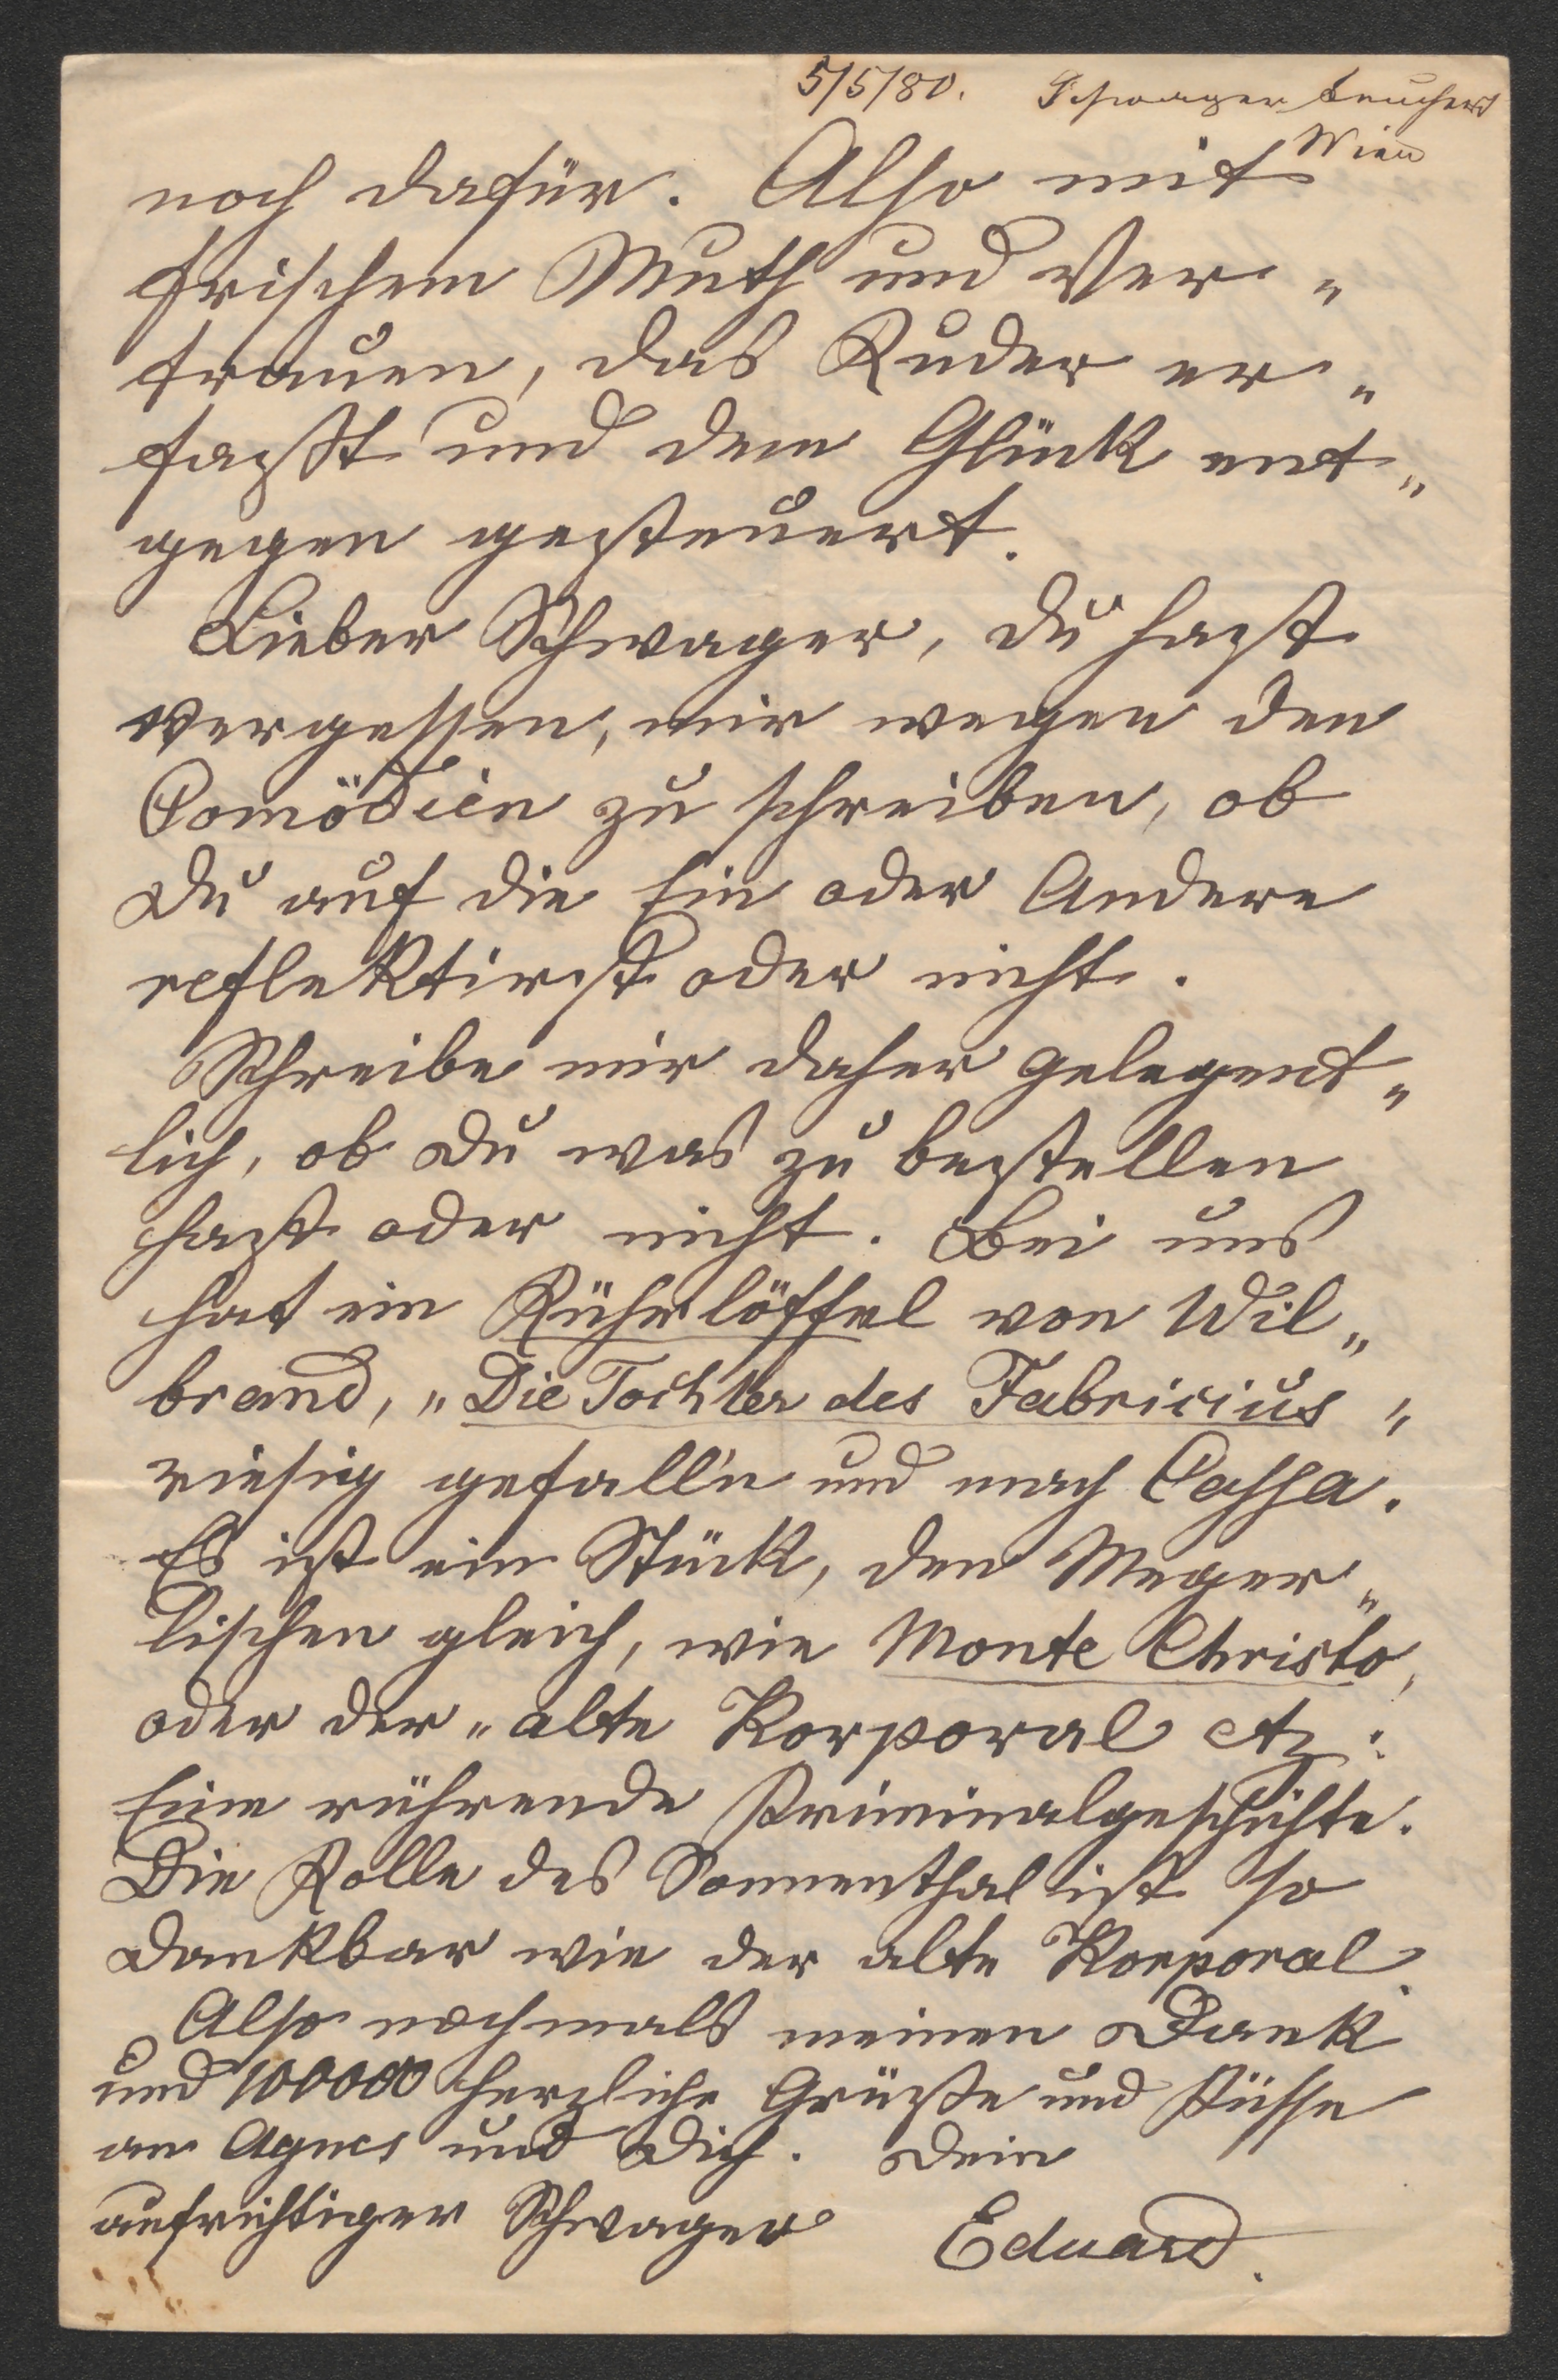 5/5/80. Schwager Teuchert
Wien
noch dafür. Also mit
frischem Muth und Ver„
trauen, das Ruder er„
faßt und dem Glück ent„
gegen gesteuert.
Lieber Schwager, du hast
vergessen, mir wegen den
Comödien zu schreiben, ob
Du auf die Ein oder Andere
reflektirst oder nicht.
Schreibe mir daher gelegent„
lich, ob Du was zu bestellen
hast oder nicht. Bei uns
hat ein Rührlöffel von Wil„
brand, „Die Tochter des Fabricius"
riesig gefall'n und mach Cassa.
Es ist ein Stück, den Meger„
lischen gleich, wie Monte Christo,
oder der „alte Korporal etz:
Eine rührende Kriminalgeschichte.
Die Rolle des Sonnenthal ist so
Dankbar wie der alte Korporal.
Also nochmals meinen Dank
und 100000 herzliche Grüße und Küsse
an Agnes und Dich. Dein
aufrichtiger Schwager Eduard.